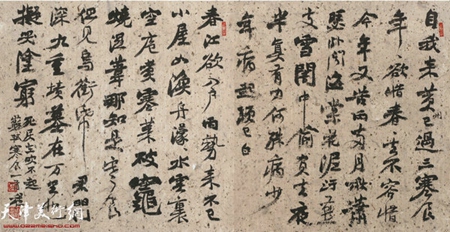 自我来黄州已過三寒食
年〻欲惜春〻去不容惜
今年又苦雨兩月秋蕭
瑟卧聞海棠花泥汙燕
支雪闇中偷負去夜
半真有力何殊病少
年病起頭已白
春江欲入戶雨勢来不已
小屋如漁舟濛〻水雲裏
空庖煮寒菜破竈
燒濕葦那知是寒食
但見烏銜帋君門
深九重墳墓在万里也
擬哭塗窮死灰吹不起
天津美术网